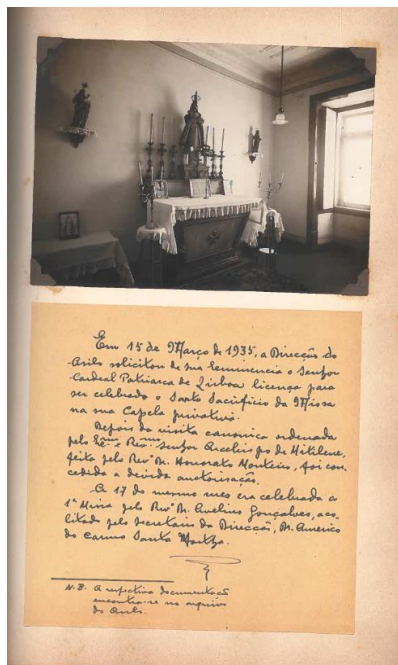 Em 15 de Março de 1935, a Direcção do
Asilo solicitou de sua Eminencia o Senhor
Cardeal Patriarca de Lisboa licença para
ser celebrado o Santo Sacrificio da Missa
na sua Capela privativa.
Depois da visita canonica ordenada
pelo Exmo. e Revmo. Senhor Arcebispo de Mitilene,
feita pelo Revo. M. Honorato Monteiro, foi con
cedida a devida autorisação.
A 17 do mesmo mes era celebrada a
1ª Missa pelo Revo. M. Avelino Gonçalves, aco
litado pelo Secretario da Direcção, M. Americo
do Carmo Santa Martha.
N.B. A respectiva documentação
encontra-se no arquivo
do Asilo.